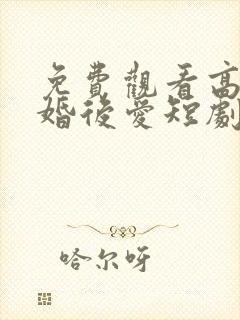 免費觀看高
婚後愛短劇
哈尔呀